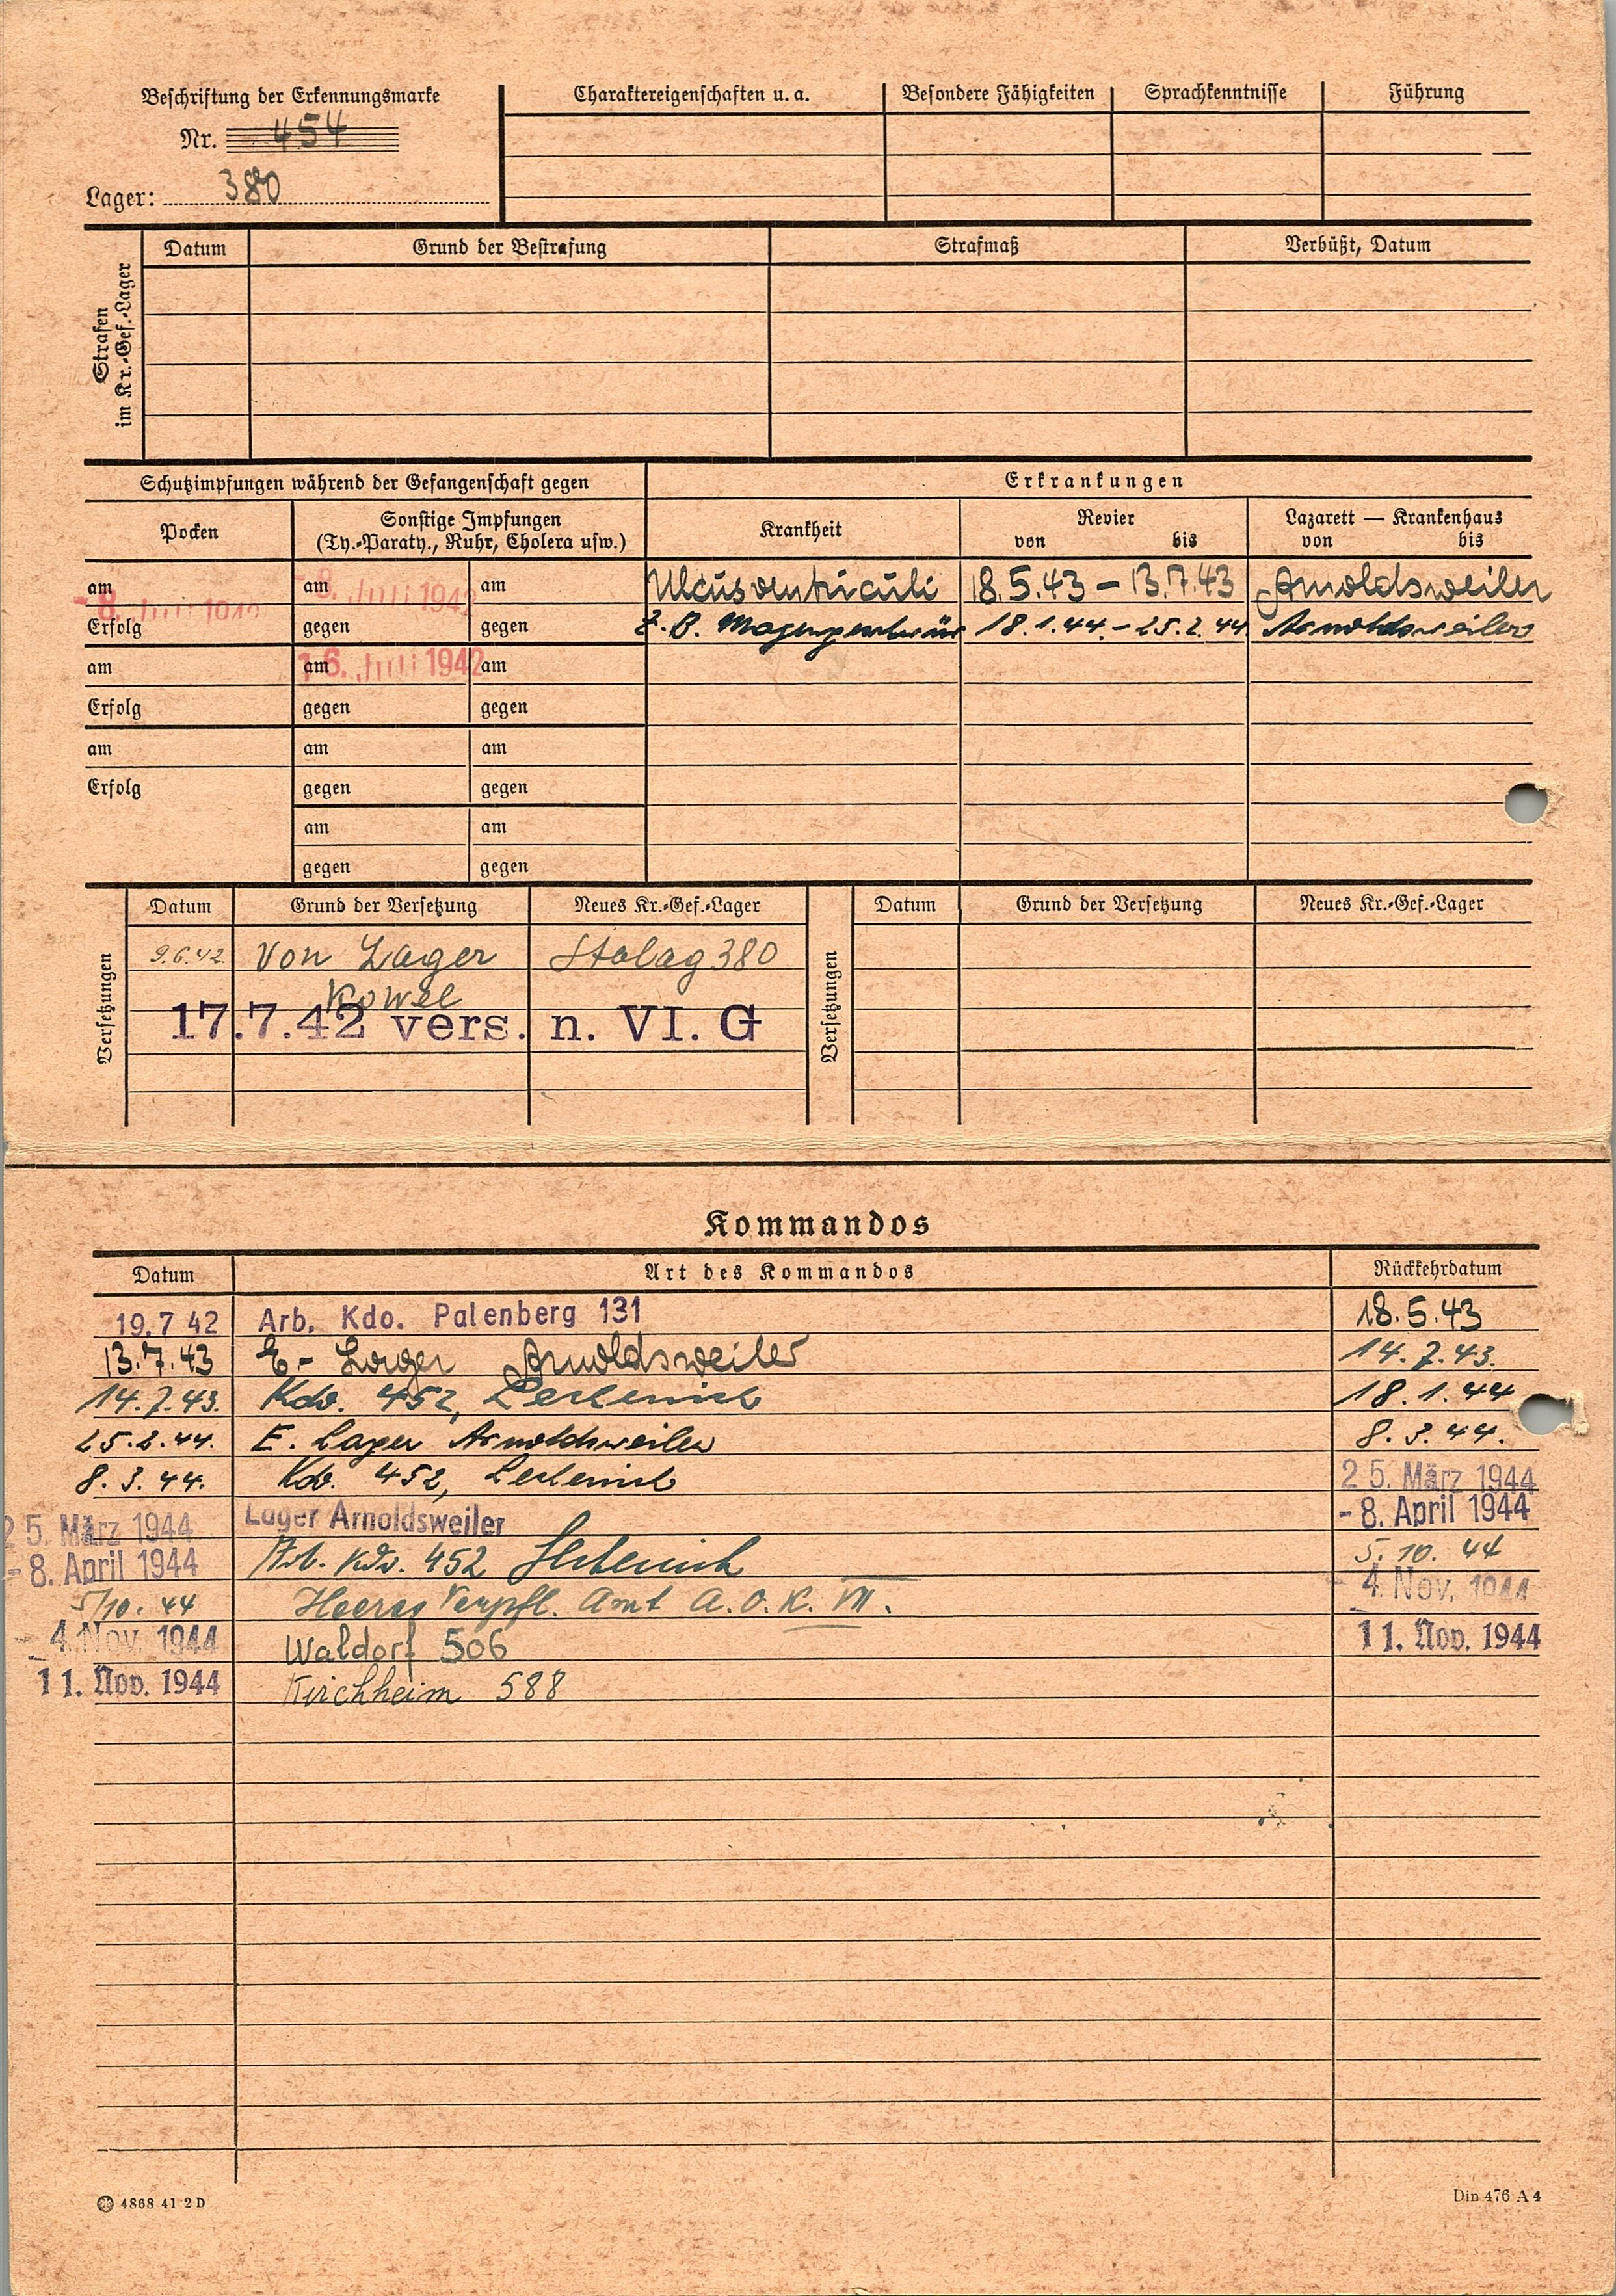 Beschriftung der Erkennungsmarke
Nr. 454
Lager: 380
Charaktereigenschaften u. a. Besondere Fähigkeiten Sprachkenntnisse Führung
Strafen
im Kr.-Gef.-Lager
Datum Grund der Bestrafung Strafmaß Verbüßt, Datum
Schutzimpfungen während der Gefangenschaft gegen
Erkrankungen
Pocken
Sonstige Impfungen
(Ty.-Paraty., Ruhr, Cholera usw.)
Krankheit
Revier
von bis
Lazarett — Krankenhaus
von bis
am - 8. Juli 1942 am - 8. Juli 1942 am Ulcus ventriculi 18.5.43 – 13.7.43 Arnoldsweiler
Erfolg gegen gegen Z. B. 18.1.44. – 25.2.44 Arnoldsweiler
am am 16. Juli 1942 am
Erfolg gegen gegen
am am am
Erfolg gegen gegen
am am
gegen gegen
Versetzungen
Datum Grund der Versetzung Neues Kr.-Gef.-Lager
9.6.42 von Lager Stalag 380
Kowel
17.7.42 vers. n. VI. G
Versetzungen
Datum Grund der Versetzung Neues Kr.-Gef.-Lager
Kommandos
Datum Art des Kommandos Rückkehrdatum
19.7 42 Arb. Kdo. Palenberg 131 18.5.43
13.7.43 E- Lager Arnoldsweiler 14.7.43.
14.7.43. Kdo. 452, Lechenich 18.1.44
25.2.44. E. Lager Arnoldsweiler 8.3.44.
8.3.44. Kdo. 452, Lechenich 25. März 1944
25. März 1944 Lager Arnoldsweiler - 8. April 1944
- 8. April 1944 Arb. Kdo. 452 5.10.44
5/10.44 Heeres Verpfl. Amt A.O.K. VII. - 4. Nov. 1944
- 4. Nov. 1944 Waldorf 506 11. Nov. 1944
11. Nov. 1944 Kirchheim 588
4868 41 2 D
Din 476 A 4